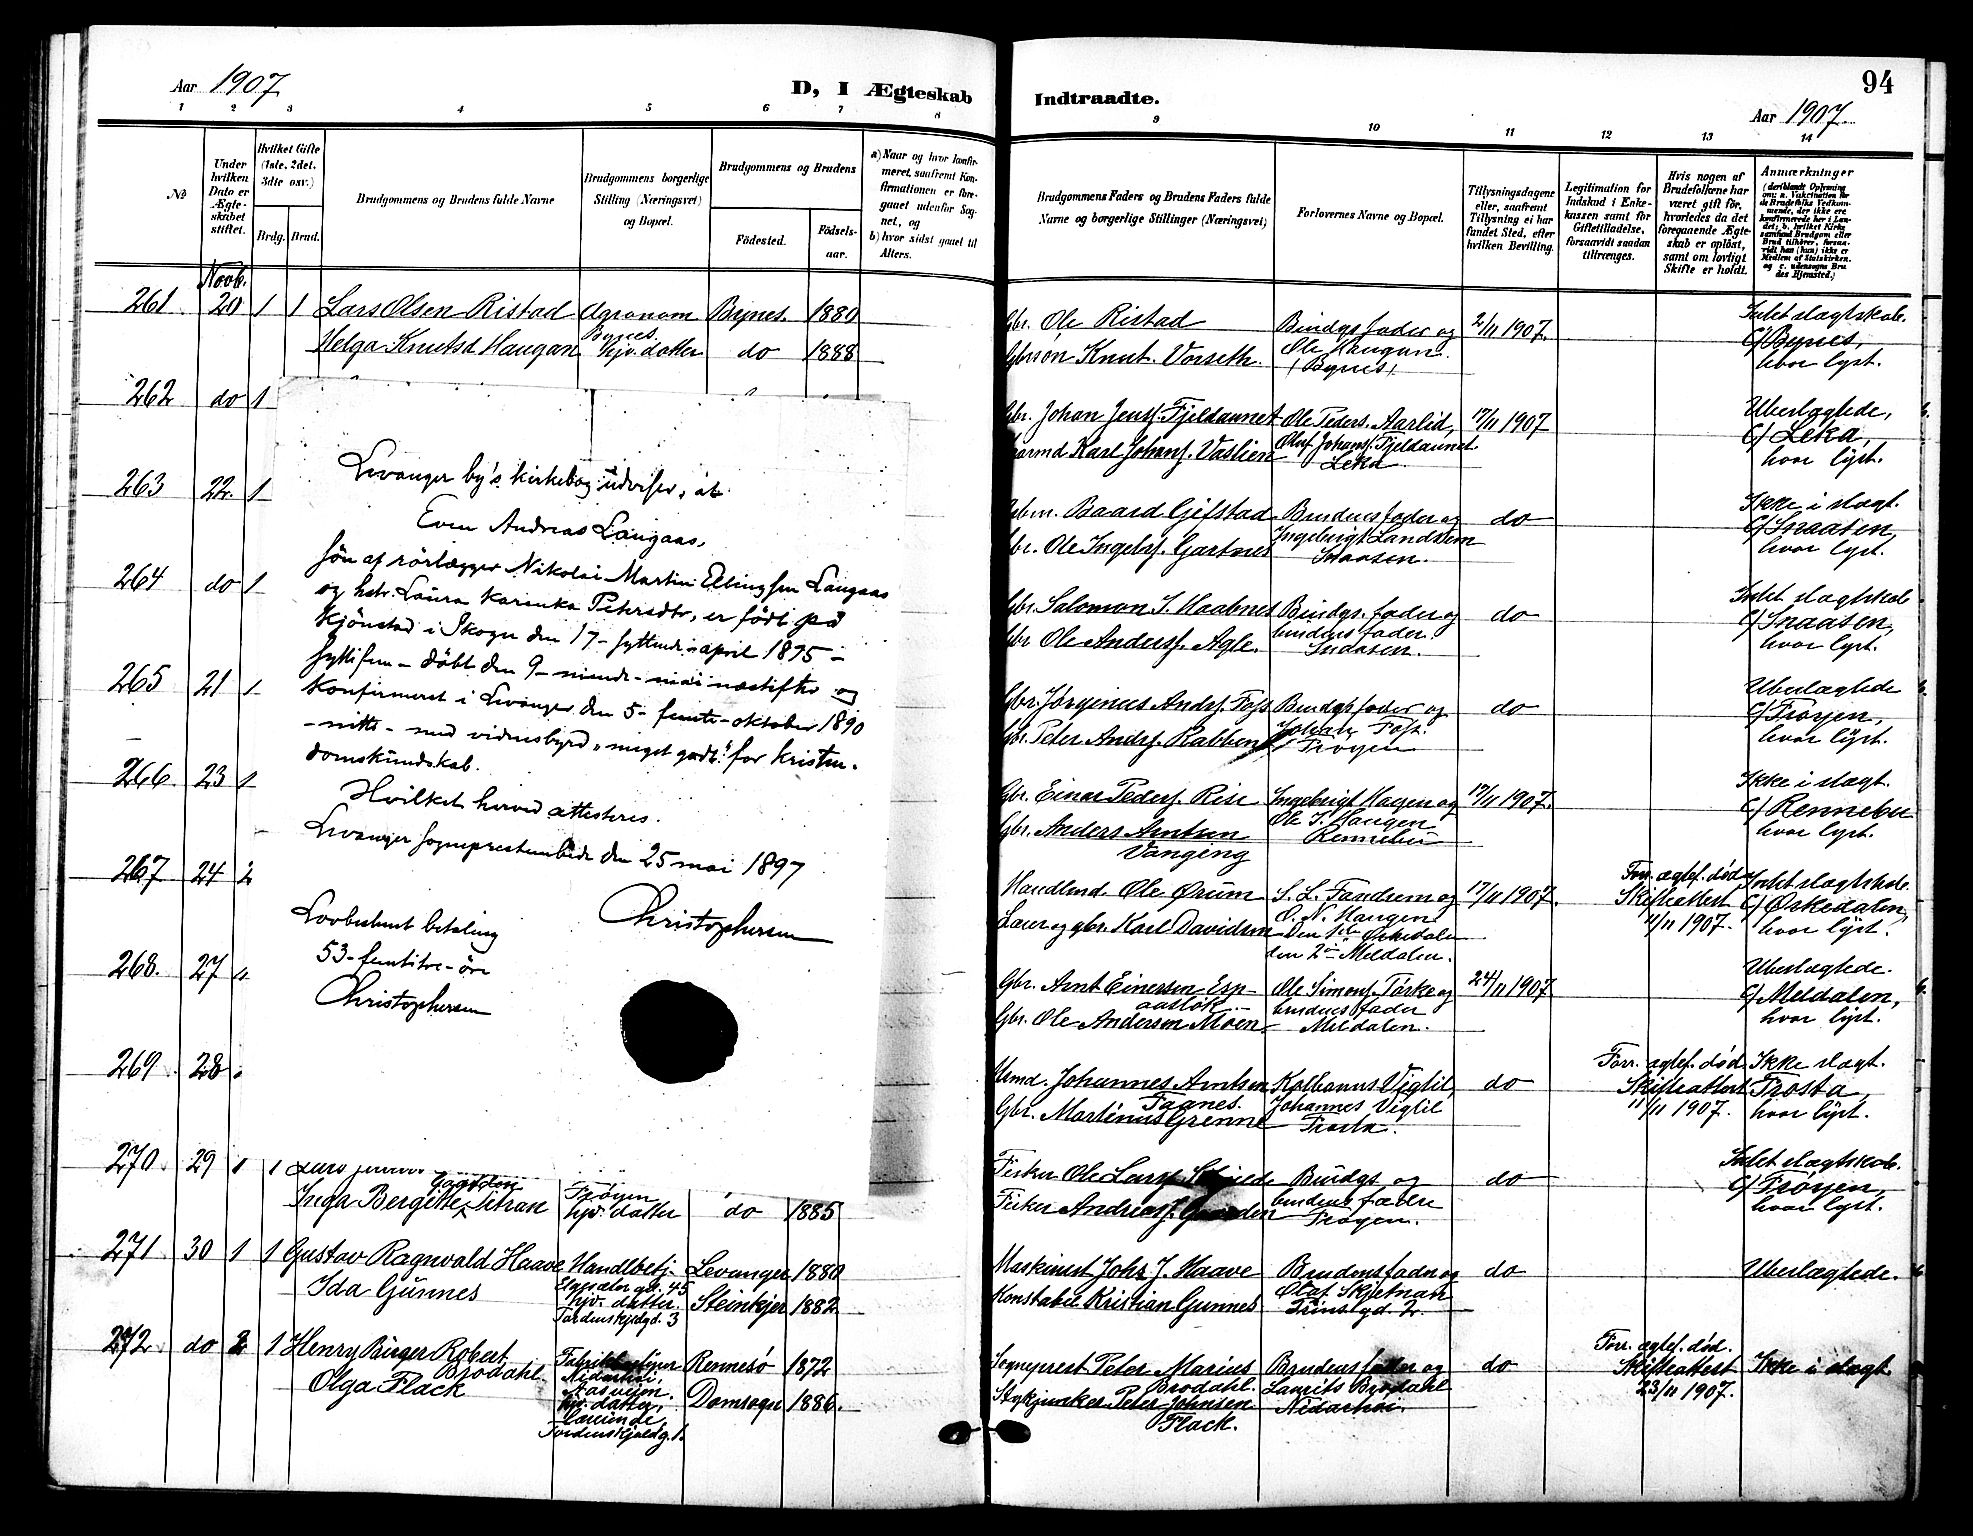 Aar 1907
D, I Ægteskab
1 2 3 4 5 6 7 8
№
Under hvilken Dato er Ægteskabet stiftet.
Hvilket Gifte (1ste, 2det, 3die osv.)
Brdg. Brud.
Brudgommens og Brudens fulde Navne
Brudgommens borgerlige Stilling (Næringsvei) og Bopæl.
Brudgommens og Brudens
Fødested. Fødsels-aar.
a) Naar og hvor konfirmeret, saafremt Konfirmationen er foregaaet udenfor Sognet, og
b) hvor sidst gaaet til Alters.
Novb.
261 20 1 1 Lars Olsen Ristad Agronom Bynes. 1880
Bynes.
Helga Knutsd Haugan hjv. datter do 1888
262 do 1
263 22. 1
264 do 1
265 21 1
266 23 1
267 24 2
268. 27
269 28
Levanger by's kirkebog udviser, at
Even Andreas Langaas,
søn af rørlægger Nikolai Martin Ellingsen Langaas
og hstr. Laura Karinka Petersdtr, er født på
Kjønstad i Skogn den 17- syttende april 1875 -
syttifem - døbt den 9- niende - mai næstefter og
konfirmeret i Levanger den 5- femte - oktober 1890
- nitti - med vidnesbyrd "meget godt" for kristen-
domskundskab.
Hvilket herved attesteres.
Levanger sogneprestembede den 25 mai 1897
Christophersen
Lovbestemt betaling
53 - femtitre - øre
Christophersen
270. 29 1 1 Lars
Gaarden
Inga Bergitte Sitran Frøyen hjv. datter do 1885
271 30 1 1 Gustav Ragnvald Haave Handlbetj. Levanger 1880
Ida Gunnes hjv. datter. Steinkjer 1882
Tordenskjoldgd. 3
272 do 2 1 Henry Birger Robert Brodahl Rennesø 1872
Olga Flack hjv. datter, Domsogn 1886.
Tordenskjoldg. 1.
Indtraadte.
94
Aar 1907.
9 10 11 12 13 14
Brudgommens Faders og Brudens Faders fulde Navne og borgerlige Stillinger (Næringsvei)
Forlovernes Navne og Bopæl.
Tillysningsdagene eller, saafremt Tillysning ei har fundet Sted, efter hvilken Bevilling.
Legitimation for Indskud i Enkekassen samt for Giftetilladelse, forsaavidt saadan tiltrænges.
Hvis nogen af Brudefolkene har været gift før, hvorledes da det foregaaende Ægteskab er opløst, samt om lovligt Skifte er holdt.
Anmærkninger
Gbr. Ole Ristad Brudgs fader og 2/11 1907. Intet slagtskab.
Gbrsøn Knut. Vorseth. Ole Haugan. Bynes. C/ Bynes, hvor lyst.
Gbr. Johan Jens. Fjeldaunet Ole Peders. Aarlid, 17/11 1907 Ubeslægtede,
Karl Johans. Vaslien Olaf Johans. Fjeldaunet. Leka C/ Leka, hvor lyst.
Baard Gifstad Brudens fader og do Ikke i slagt.
Gbr. Ole Ingebr. Gartnes Ingebrigt Landsem Snaasen. C/ Snaasen, hvor lyst.
Gbr. Salomon S. Haabnes Brudgs. fader og do Intet slagtskab
Gbr Ole Anders. Agle. brudens fader. Snaasen. C/ Snaasen, hvor lyst.
Gbr. Jørginus Andrs. Foss Brudgs fader og do Ubeslægtede
Gbr. Peter Andrs. Rabben Foss. Frøyen C/ Frøyen, hvor lyst.
Gbr. Einar Peders. Rise Ingebrigt Hagen og 17/11 1907. Ikke i slagt.
Gbr. Anders Arntsen Ole I. Haugen Rennebu C/ Rennebu hvor lyst.
Vanging
Handlmd. Ole Ørum S. L. Fandrem og 17/11 1907. Forr. ægtef. død Intet slagtskab.
gbr. Karl Davidsen O. N. Haugen Skifteattest 11/11 1907. C/ Ørkedalen, hvor lyst.
Den 1ste Ørkedalen
den 2den Meldalen.
Gbr. Arnt Einersen Espaasløk Ole Simons. Torke og 24/11 1907 Ubeslægtede.
Gbr. Ole Andersen Moen brudens fader Meldalen. C/ Meldalen, hvor lyst.
Johannes Arntsen Faanes. Kolbanus Vigtil, do Forr. ægtef. død Ikke slagt.
Gbr. Martinus Grenne Johannes Vigtil Frosta. Skifteattest 11/11 1907. Frosta, hvor lyst.
Fisker Ole Lars. Brudgs og do Intet slagtskab.
Fisker Andreas J. Gaarden brudens fædre Frøyen. C/ Frøyen, hvor lyst.
Maskinist Johs J. Haave Brudens fader og do Ubeslægtede.
Konstabel Kristian Gunnes Olaf Skjetnan
Sogneprest Peter Marius Brodahl. Brudens fader og do Forr. ægtef. død. Ikke i slagt
Stykjunker Peter Johnsen Flack. Laurits Brodahl Nidarhøi. Skifteattest 23/11 1907.